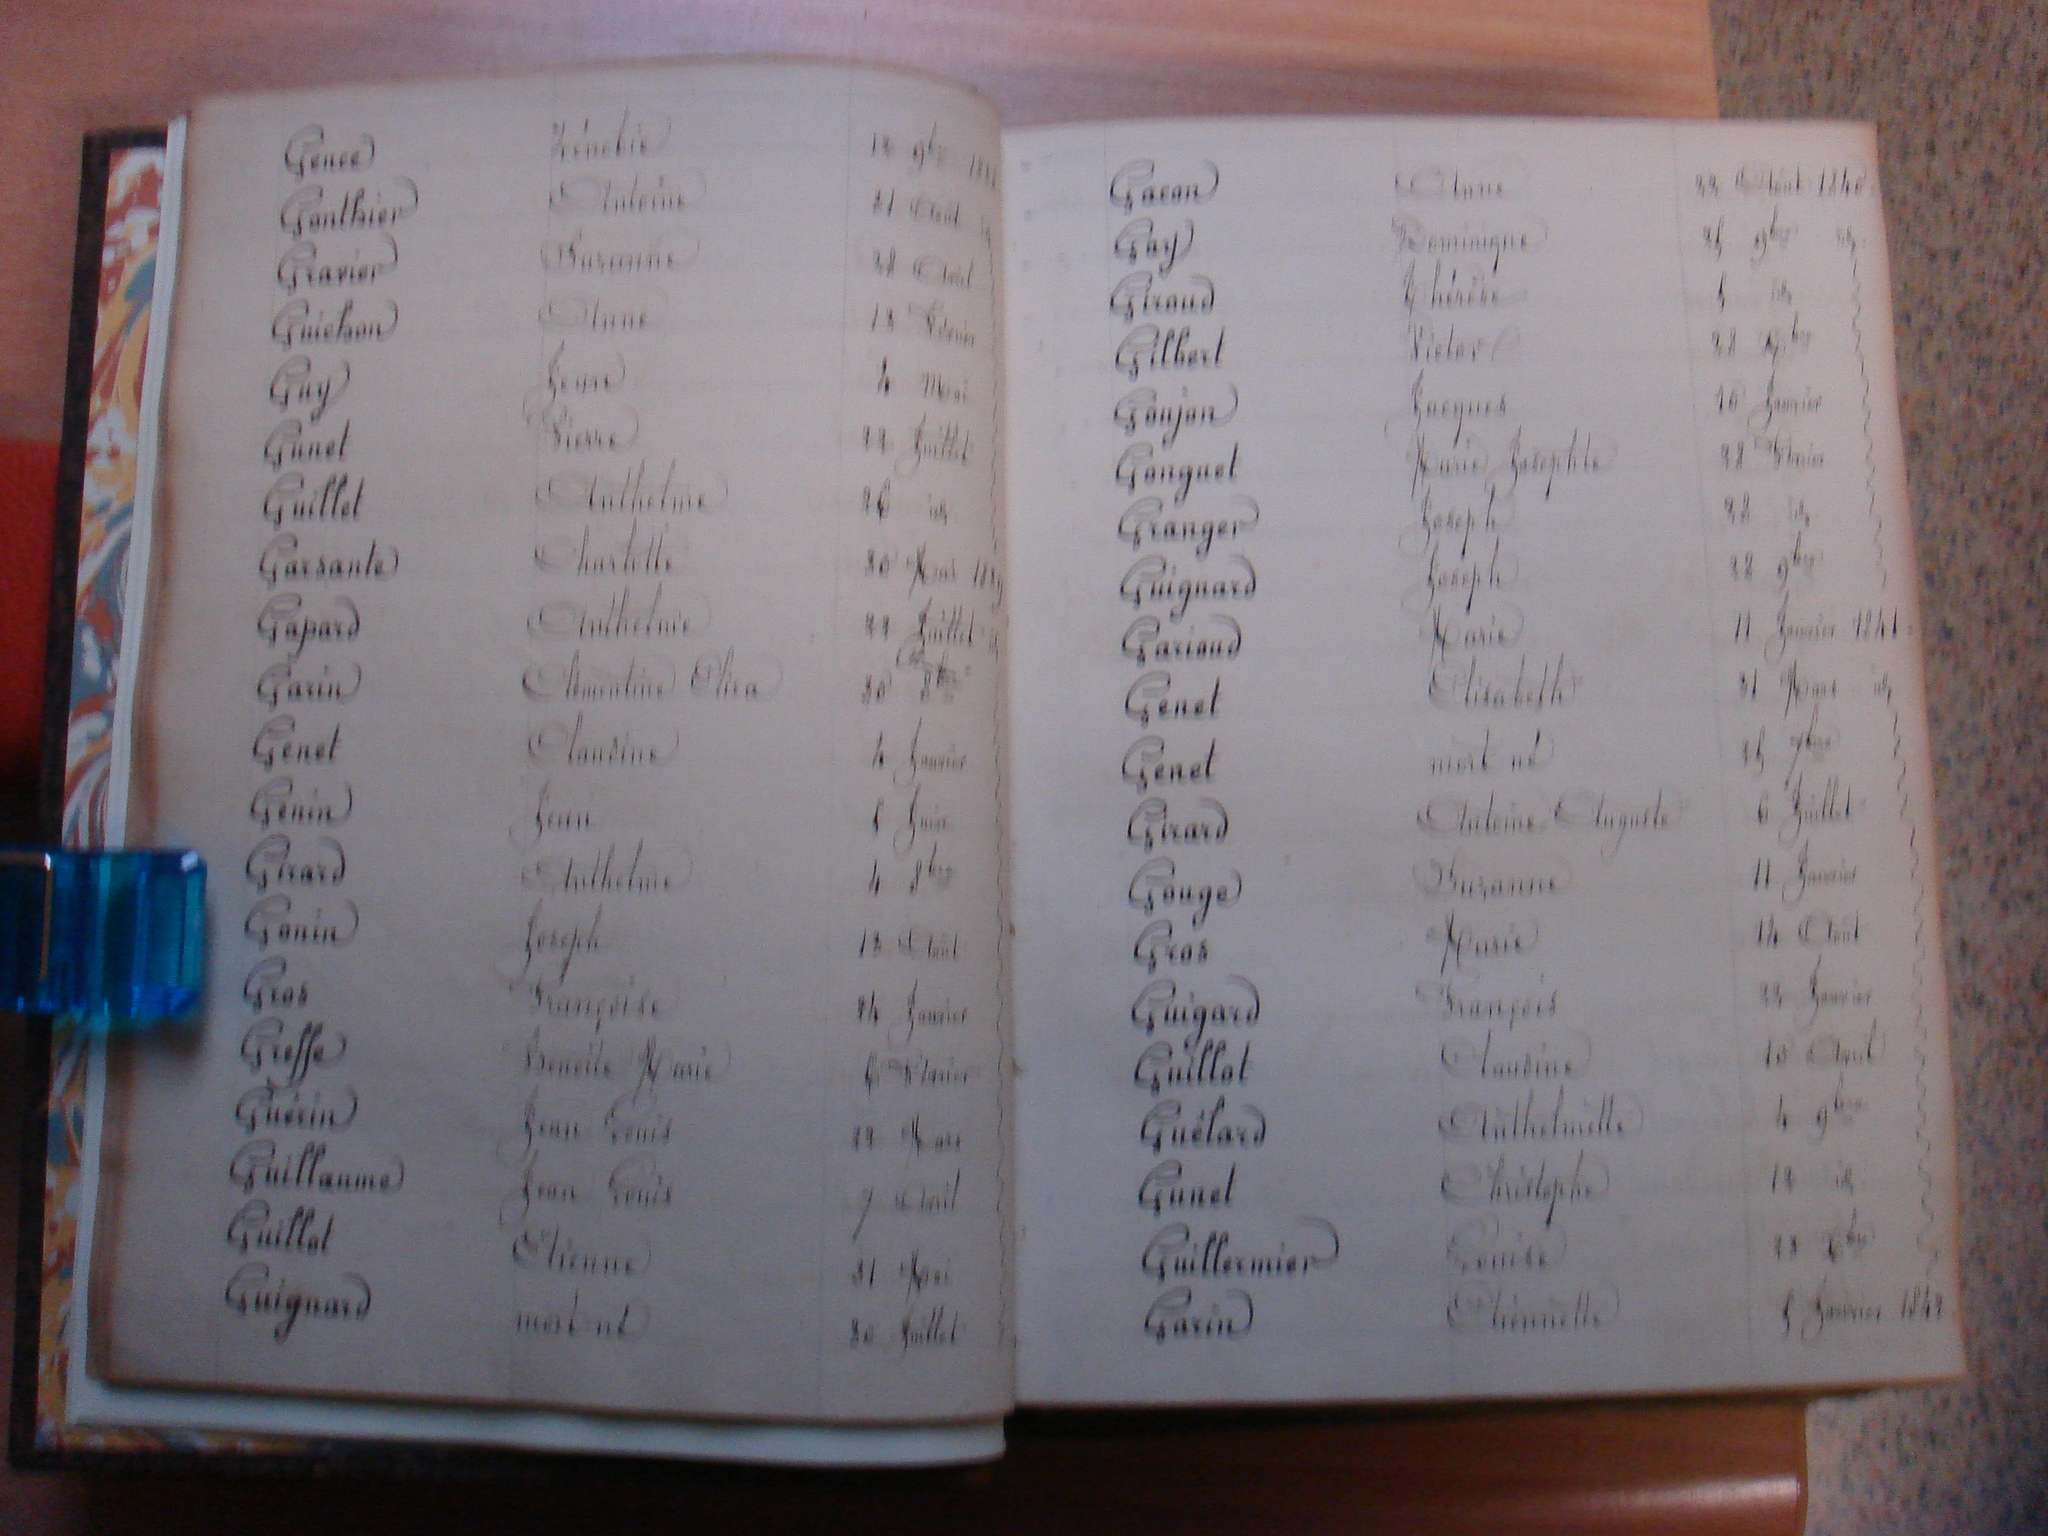 Gence Zénobie 12 9bre
Gonthier Antoine 31 Août
Gravier Suzanne 28 Avril
Guichon Anne 12 Février
Guy Jeune 4 Mai
Gunet Pierre 22 Juillet
Guillet Anthelme 26 id
Garsante Charlotte 30 Mars 1839
Gapard Anthelmie 22 Juillet id
Garin Clémentine Eliza 30 8bre
Genet Claudine 4 Janvier
Génin Jean 5 Juin
Girard Anthelmie 4 8bre
Gonin Joseph 12 Août
Gros Françoise 24 Janvier
Greffe Benoite Marie 6 Février
Guérin Jean Louis 22 Mars
Guillaume Jean Louis 7 Avril
Guillot Etienne 31 Mai
Guignard mort né 30 Juillet
Gacon Anne 22 Août 1840
Guy Dominique 25 9bre id
Giraud Thérèse 5 id
Gilbert Victor 28
Goujon Jacques 16 Janvier
Gonguet Marie Josephte 28 Février
Granger Joseph 28 id
Guignard Joseph 28 9bre
Garioud Marie 11 Janvier 1841
Genet Elisabeth 31 Mars id
Genet mort né 25 7bre
Girard Antoine Auguste 6 Juillet
Gouge Suzanne 11 Janvier
Gros Marie 14 Août
Guigard François 22 Janvier
Guillot Claudine 10 Avril
Guélard Anthelmette 4 9bre
Gunet Christophe 12 id
Guillermier Louise 28
Garin Etiennette 5 Janvier 1842